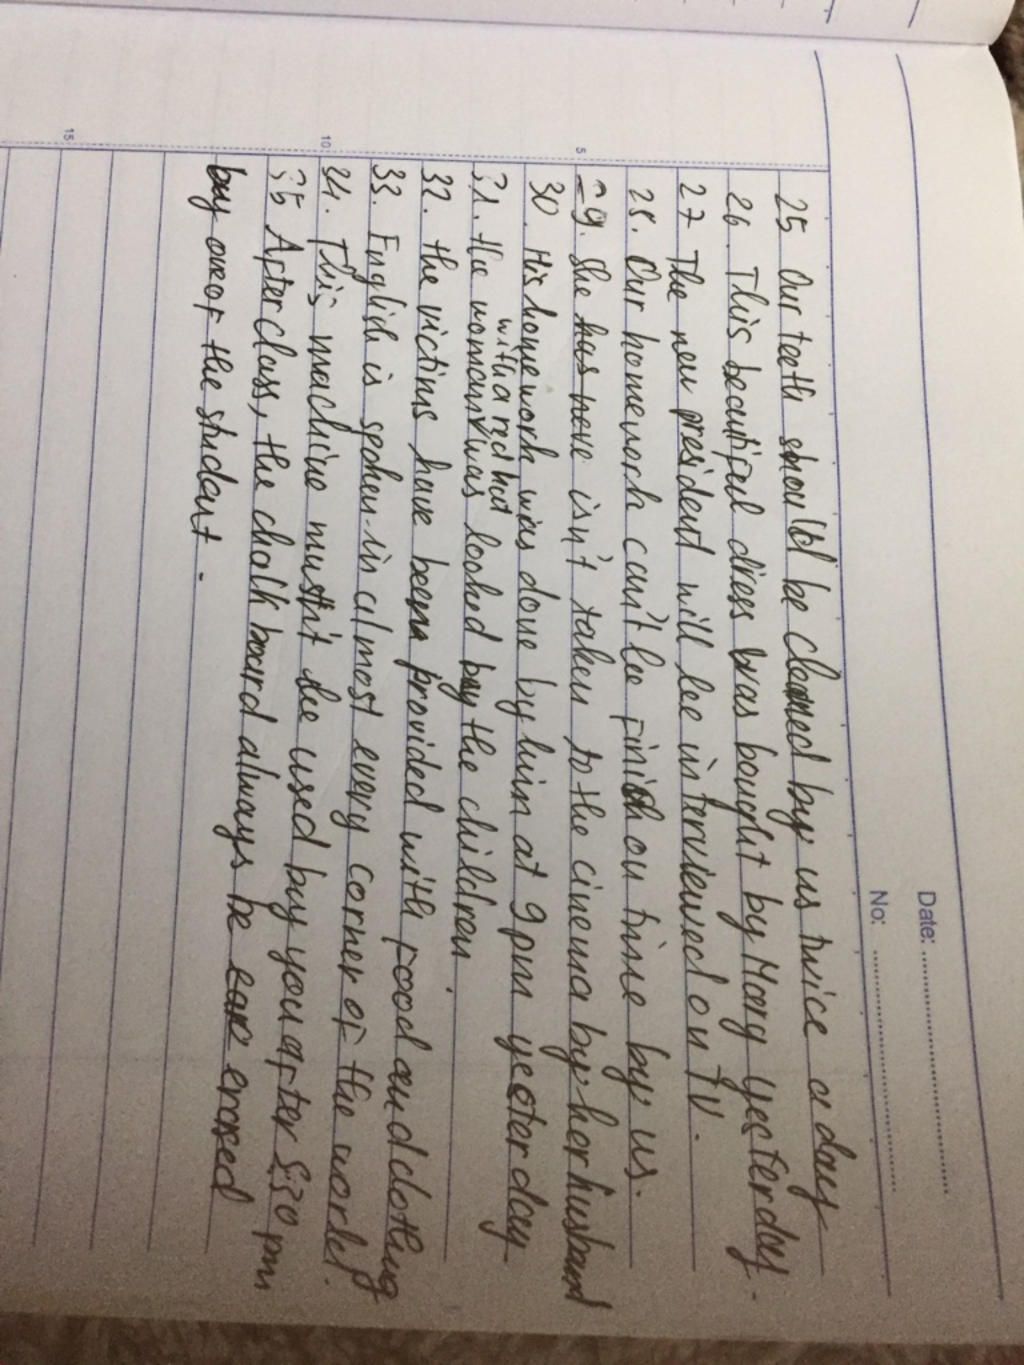 Date:
No:
25 Our teeth should be cleaned by us twice a day
26. This beautiful dress was bought by Mary yesterday.
27 The new president will be interviewed on TV.
28. Our homework can't be finish on time by us.
29. She has neve isn't taken to the cinema by her husband
30. His homework was done by him at 9 pm yesterday
with a red hat
31. the woman was looked by the children.
32. the victims have been provided with food and clothing
33. English is spoken in almost every corner of the world.
34. This machine mustn't be used by you after 5:30 pm
35 After class, the chalk board always be ear erased
by one of the student.
5
10
15